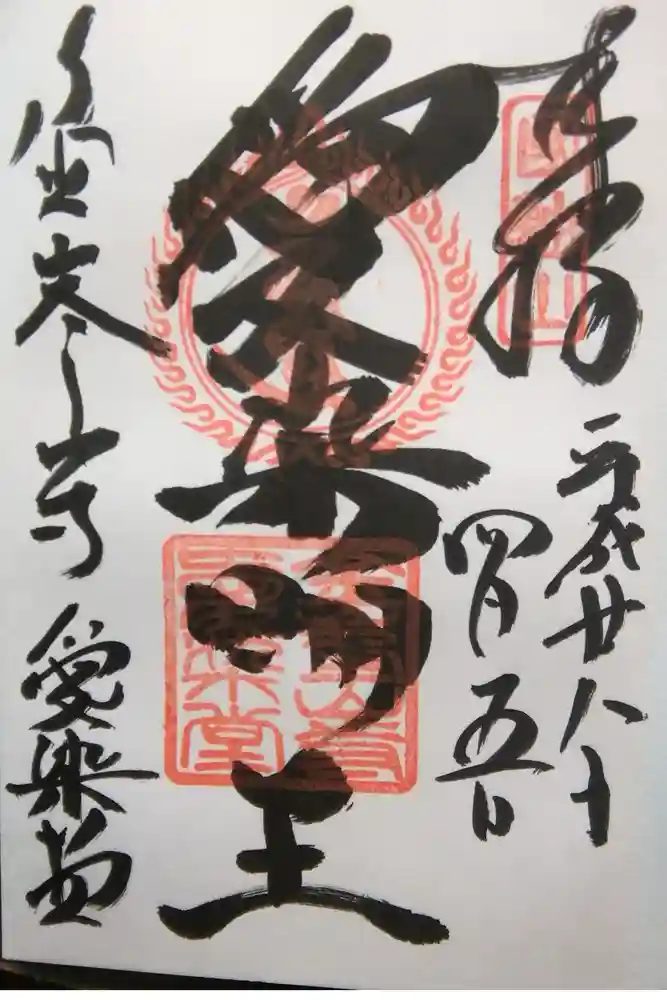 奉拝
平成廿八年
四月五日
愛染明王
金峯山寺 愛染堂
国軸山